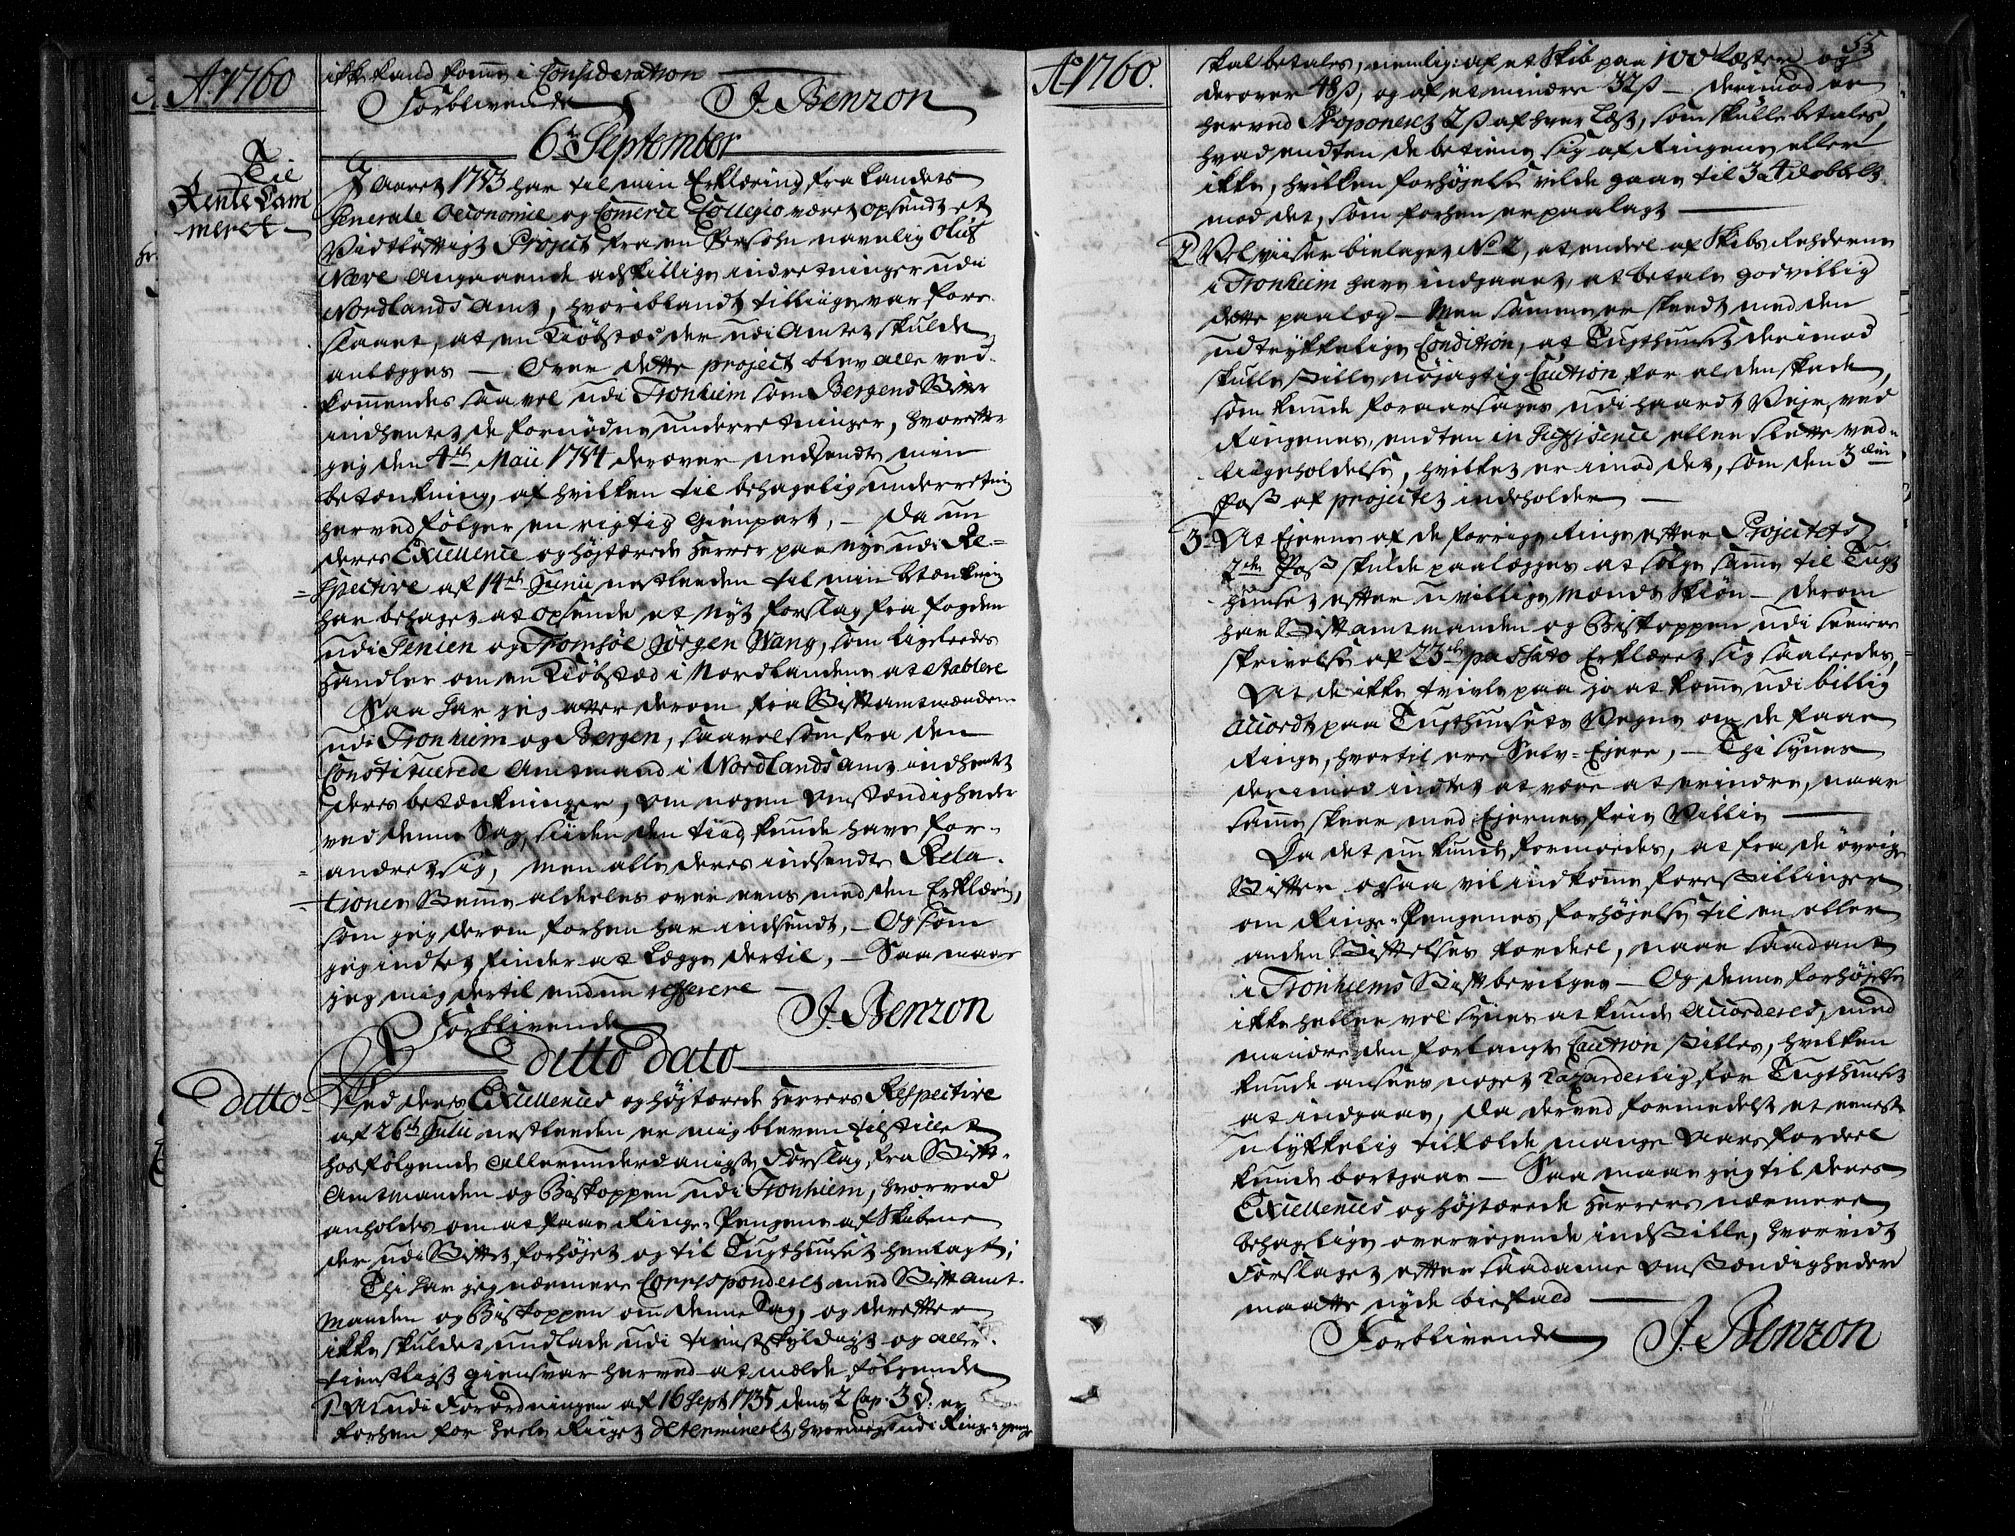 Ao 1760
ikke kand komme i Consideration
Forblivende J. Benzon
6te September
Til
Rente Kam
meret
I Aaret 1753 har til min Erklæring fra Landets
Generale Oeconomie og Commerce Collegio været opsendt et
Vidtløftigt Project, fra en Persohn navnlig Oluf
Næve Angaaende adskillige indretninger udi
Nordlands Amt, hvoriblandt tilliige var fore-
slaaet, at en Kiøbstæd der udi Amtet skulde
anlægges – Over dette project blev alle ved-
kommendes saavel udi Tronhiem som Bergens Stifter
indhentet de fornødne underretninger, hvorefter
jeg den 4de Maii 1754 derover nedsendte min
betænkning, af hvilken til behagelig underretning
herved følger en rigtig Gienpart, – Da nu
deres Excellence og højtærede Herrer paa nye udi Re-
spective af 14de Junii nestleeden til min Betænkning
har behaget at opsende et nyt forslag fra fogden
udi Senien og Tromsøe Jørgen Wang, som ligeleedes
handler om en Kiøbstæd i Nordlandene at etablere
Saa har jeg atter derom fra Stiftamtmændene
udi Tronhiem og Bergen, saavelsom fra den
Constituerede Amtmand i Nordlands Amt indhentet
deres betænkninger, om nogen omstændigheder
ved denne Sag, siiden den tiid, kunde have for-
andret sig, men alle deres indsendte Rela-
tioner stemme alderles over eens med den Erklæring,
som jeg derom forhen har indsendt, – Og som
jeg indtet finder at legge dertil, – Saa maae
jeg mig dertil endnu refferere
Forblivende J. Benzon
ditto dato
ditto
Ved deres Excellences og højtærede Herrers Respective
af 26de Julii nestleeden er mig bleven tilstillet
hosfølgende Allerunderdanigste Forslag, fra Stift-
Amtmanden og Biskoppen udi Tronhiem, hvorved
anholdes om at faae Ringe-Pengene af Skibene
der udi Stiftet forhøjet og til Tugthuuset henlagt;
Thi har jeg nærmere Corresponderet med Stiftamt-
manden og Biskoppen om denne Sag, og derefter
ikke skuldet undlade udi tienstskyldigst og aller-
tienstligst Giensvar herved at melde følgende
1 At udi Forordningen af 16 Sept 1735 dens 2 Cap. 3 §. er
forhen for heele Riiget determineret, hvormeget udi Ringe-penge
Ao 1760.
55
skal betales, nemlig: af et Skib paa 100 Læster og
derover 48ß, og af et mindre 32ß – derimod er
herved Proponeret 2ß af hver Læst, som skulle betales,
hvad endten de betiene sig af Ringene eller
ikke, hvilken forhøjelse vilde gaae til 3 a 4 dobbelt
mod det, som forhen er paalagt
2 Vel viiser bielaget No 2, at endeel af Skibs Rehderne
i Tronhiem have indgaaet, at betale godvillig
dette paalæg – Men samme er skeedt med den
udtrykkelige Condition, at Tugthuuset derimod
skulle stille nøjagtig Caution for al den skade,
som kunde foraarsages udi haardt Vejr, ved
Ringenes, endten in sufficence eller slette ved-
liigeholdelse, hvilket er imod det, som den 3die
Post af projectet indeholder
3 At Ejerne af de forrige Ringe efter Projectets
7de Post skulde paalægges at sælge samme til Tugt
huuset efter uvillige Mænds Skiøn – derom
har Stiftamtmanden og Biskoppen udi seeniere
skrivelse af 23de passato Erklæret sig saaleedes,
At de ikke tvivle paa jo at komme udi billig
Accord paa Tugthuusets Vegne om de faae
Ringe, hvortil ere Selv-Ejere, – Thi synes
derimod indtet at være at erindre, naar
samme skeer med Ejernes frie Villie
Da det nu kunde formodes, at fra de øvrige
Stifter ogsaa vil indkomme forestillinger
om Ringe-Pengenes forhøjelse til en eller
anden Stiftelses fordeel, naar saadant
i Tronhiems Stift bevilges – Og denne forhøjelse
ikke heller vel synes at kunde Accorderes, med
mindre den forlangte Caution stilles, hvilken
kunde ansees noget hazardeelig for Tugthuuset
at indgaae, da derved formedelst et eeneste
ulykkelig tilfælde mange Aars fordeel
kunde bortgaae – Saa maae jeg til deres
Excellences og højtærede Herrers nærmere
behagelige overvejende indstille, hvorvidt
Forslaget efter saadanne omstændigheder
maatte nyde biefald
Forblivende J. Benzon